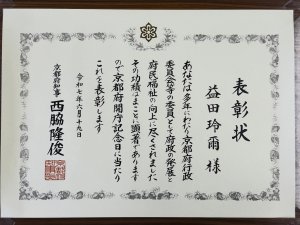 表彰状
益田玲爾 様
あなたは多年にわたり京都府行政
委員会等の委員として府政の発展と
府民福祉の向上に尽くされました
その功績はまことに顕著であります
ので京都府開庁記念日に当たり
これを表彰します
令和七年六月十九日
京都府知事 西脇隆俊